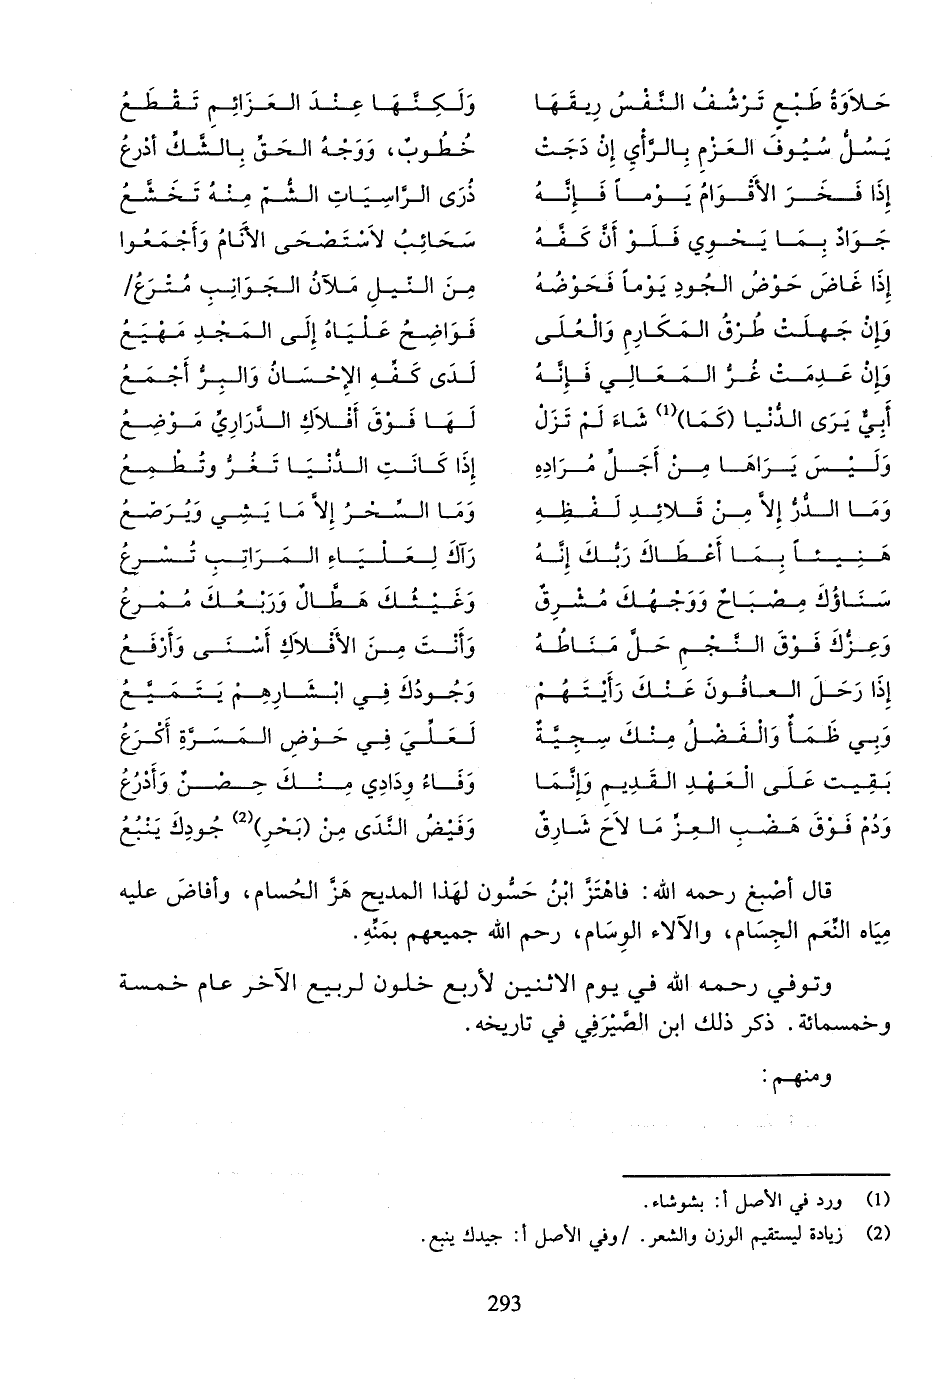 حَلاَوَةُ طَبْعٍ تَرْشَفُ النَّفْسُ رِيقَهَا وَلَكِنَّهَا عِنْدَ الْعَزَائِمِ تَقْطَعُ
يَسُلُّ سُيُوفَ الْعَزْمِ بِالرَّأْيِ إِنْ دَجَتْ خُطُوبٌ، وَوَجْهُ الْحَقِّ بِالشَّكِّ أَدْرَعُ
إِذَا فَخَرَ الأَقْوَامُ يَوْماً فَإِنَّهُ ذُرَى الرَّاسِيَاتِ الشُّمِّ مِنْهُ تَخَشَّعُ
جَوَادٌ بِمَا يَحْوِي فَلَوْ أَنَّ كَفَّهُ سَحَائِبُ لاَسْتَضْحَى الأَنَامُ وَأَجْمَعُوا
إِذَا غَاضَ حَوْضُ الْجُودِ يَوْماً فَحَوْضُهُ مِنَ النَّيْلِ مَلآنُ الْجَوَانِبِ مُتْرَعُ/
وَإِنْ جُهِلَتْ طُرْقُ الْمَكَارِمِ وَالْعُلَى فَوَاضِحُ عَلْيَاهُ إِلَى الْمَجْدِ مَهْيَعُ
وَإِنْ عَدِمَتْ غُرَّ الْمَعَالِي فَإِنَّهُ لَدَى كَفِّهِ الإِحْسَانُ وَالْبِرُّ أَجْمَعُ
أَبِيٌّ يَرَى الدُّنْيَا (كَمَا)(1) شَاءَ لَمْ تَزَلْ لَهَا فَوْقَ أَفْلاَكِ الدَّرَارِيِّ مَوْضِعُ
وَلَيْسَ يَرَاهَا مِنْ أَجَلِّ مُرَادِهِ إِذَا كَانَتِ الدُّنْيَا تَغُرُّ وَتُطْمِعُ
وَمَا الدُّرُّ إِلاَّ مِنْ قَلاَئِدِ لَفْظِهِ وَمَا السِّحْرُ إِلاَّ مَا يَشِي وَيُرَصِّعُ
هَنِيئاً بِمَا أَعْطَاكَ رَبُّكَ إِنَّهُ رَآكَ لِعَلْيَاءِ الْمَرَاتِبِ تُسْرِعُ
سَنَاؤُكَ مِصْبَاحٌ وَوَجْهُكَ مُشْرِقٌ وَغَيْثُكَ هَطَّالٌ وَرَبْعُكَ مُمْرِعُ
وَعِزُّكَ فَوْقَ النَّجْمِ حَلَّ مَنَاطَهُ وَأَنْتَ مِنَ الأَفْلاَكِ أَسْنَى وَأَرْفَعُ
إِذَا رَحَلَ الْعَافُونَ عَنْكَ رَأَيْتَهُمْ وَجُودُكَ فِي آثَارِهِمْ يَتَتَبَّعُ
وَبِي ظَمَأٌ وَالْفَضْلُ مِنْكَ سَجِيَّةٌ لَعَلِّيَ فِي حَوْضِ الْمَسَرَّةِ أَكْرَعُ
بَقِيتَ عَلَى الْعَهْدِ الْقَدِيمِ وَإِنَّمَا وَفَاءُ وِدَادِي مِنْكَ حِصْنٌ وَأَدْرُعُ
وَدُمْ فَوْقَ هَضْبِ الْعِزِّ مَا لاَحَ شَارِقٌ وَفَيْضُ النَّدَى مِنْ (بَحْرِ)(2) جُودِكَ يَنْبُعُ
قال أصبغ رحمه الله: فاهْتَزَّ ابْنُ حَسُّون لهَذا المديح هَزَّ الحُسام، وأفاضَ عليه
مِيَاه النَّعَم الجِسَام، والآلاء الوِسَام، رحم الله جميعهم بِمَنِّهِ.
وتوفي رحمه الله في يوم الاثنين لأربع خلون لربيع الآخر عام خمسة
وخمسمائة. ذكر ذلك ابن الصَّيْرَفِي في تاريخه.
ومنهم:
(1) ورد في الأصل أ: بشوشاء.
(2) زيادة ليستقيم الوزن والشعر. /وفي الأصل أ: جيدك ينبع.
293